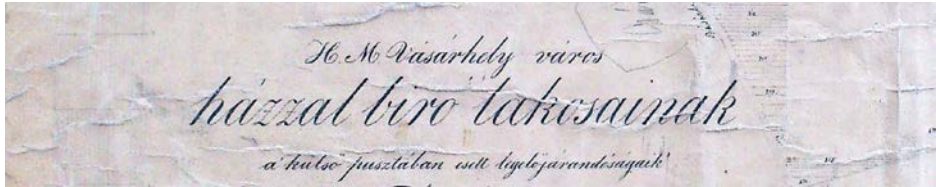 H. M Vásárhely város
házzal biró lakosainak
a' külső pusztában esett legelőjárandóságaik'